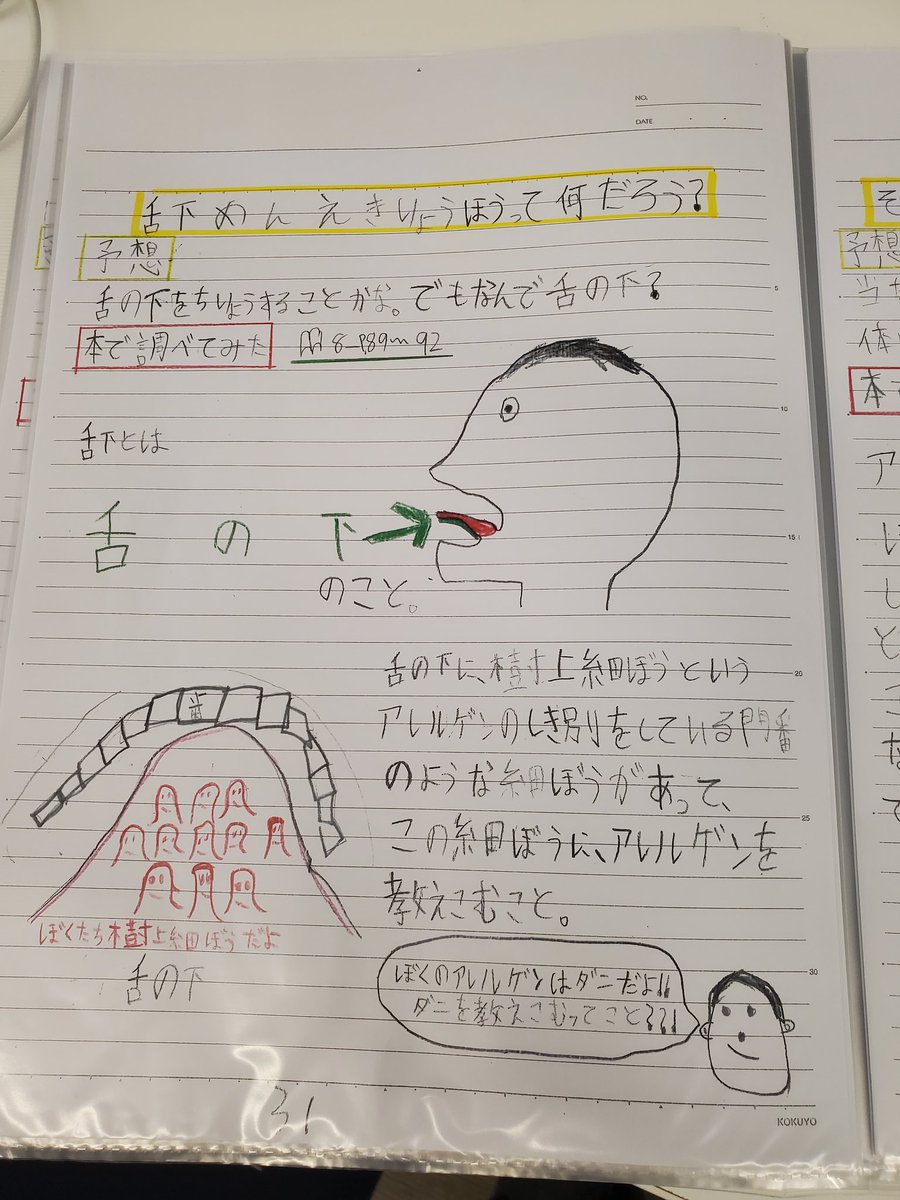 NO.
DATE
舌下めんえきりょうほうって何だろう?
予想
舌の下をちりょうすることかな。でもなんで舌の下?
本で調べてみた
8 P89~92
舌下とは
舌の下
のこと。
舌の下に、樹上細ぼうという
アレルゲンのしき別をしている門番
のような細ぼうがあって、
この細ぼうに、アレルゲンを
教えこむこと。
歯
ぼくたち樹上細ぼうだよ
舌の下
ぼくのアレルゲンはダニだよ!!
ダニを教えこむってこと???!
31
KOKUYO
5
10
15
20
25
30
予想
当
体
本
ア
し
と
こ
な
て